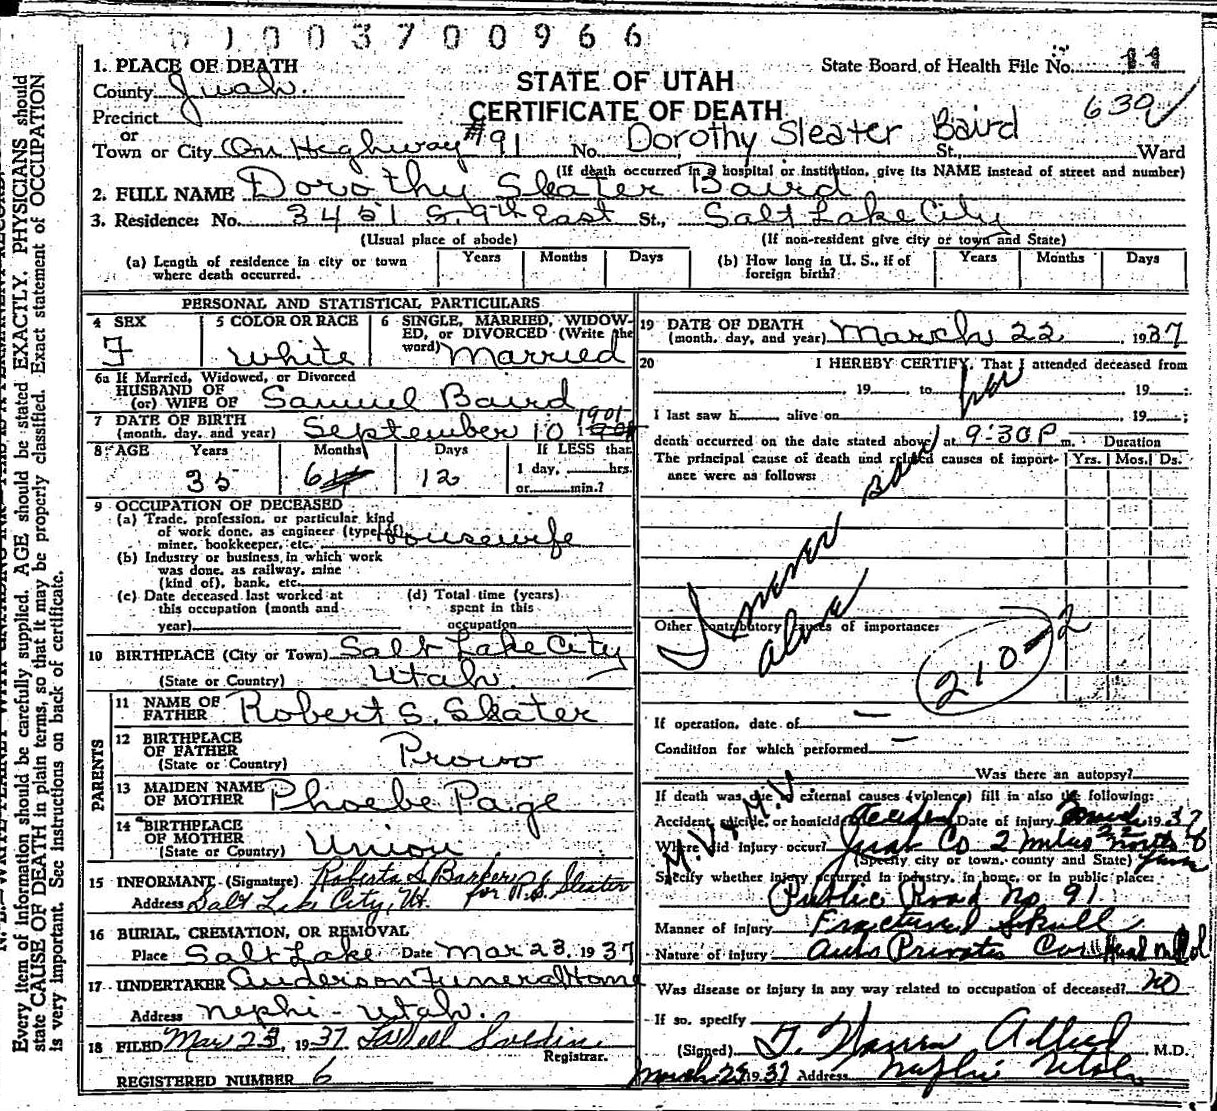 0 1 0 0 3 7 0 0 9 6 6
1. PLACE OF DEATH
State Board of Health File No. 11
STATE OF UTAH
CERTIFICATE OF DEATH
639
County Juab.
Precinct
or
Town or City On Highway #91 No. Dorothy Sleater Baird St., Ward
(If death occurred in a hospital or institution, give its NAME instead of street and number)
2. FULL NAME Dorothy Sleater Baird
3. Residence: No. 3451 S 9th East St., Salt Lake City
(Usual place of abode) (If non-resident give city or town and State)
(a) Length of residence in city or town where death occurred. Years Months Days
(b) How long in U. S., if of foreign birth? Years Months Days
PERSONAL AND STATISTICAL PARTICULARS
4 SEX F
5 COLOR OR RACE White
6 SINGLE, MARRIED, WIDOWED, OR DIVORCED (Write the word) Married
6a If Married, Widowed, or Divorced
HUSBAND OF
(or) WIFE OF Samuel Baird
7 DATE OF BIRTH
(month, day, and year) September 10 1901
8 AGE Years 35 Months 6 Days 12 If LESS than
1 day, hrs.
or min.?
9 OCCUPATION OF DECEASED
(a) Trade, profession, or particular kind
of work done, as engineer (type of)
miner, bookkeeper, etc. Housewife
(b) Industry or business in which work
was done, as railway, mine
(kind of), bank, etc.
(c) Date deceased last worked at
this occupation (month and
year)
(d) Total time (years)
spent in this
occupation
10 BIRTHPLACE (City or Town) Salt Lake City
(State or Country) Utah.
PARENTS
11 NAME OF FATHER Robert S. Sleater
12 BIRTHPLACE OF FATHER
(State or Country) Provo
13 MAIDEN NAME OF MOTHER Phoebe Paige
14 BIRTHPLACE OF MOTHER
(State or Country) Union
15 INFORMANT (Signature) Roberta S. Barker for R.S. Sleater
Address Salt Lake City, Ut.
16 BURIAL, CREMATION, OR REMOVAL
Place Salt Lake Date Mar 23, 1937
17 UNDERTAKER Anderson Funeral Home
Address Nephi - Utah.
18 FILED Mar 23, 1937
Registrar.
REGISTERED NUMBER 6
19 DATE OF DEATH
(month, day, and year) March 22, 1937
20 I HEREBY CERTIFY, That I attended deceased from
, 19 to , 19 ;
I last saw h alive on 19 ;
death occurred on the date stated above, at 9:30 P. m. Duration
The principal cause of death and related causes of importance were as follows: Yrs. Mos. Ds.
I never saw her
alive
Other contributory causes of importance:
210-2
If operation, date of —
Condition for which performed —
Was there an autopsy?
If death was due to external causes (violence) fill in also the following:
Accident, suicide, or homicide Accident Date of injury 1937
Where did injury occur? Juab Co 2 miles north of
(Specify city or town, county and State)
Specify whether injury occurred in industry, in home, or in public place:
Public Road No. 91
M.V. & M.V
Manner of injury Fractured Skull
Nature of injury Auto Private Car
Was disease or injury in any way related to occupation of deceased? No
If so, specify
(Signed) M.D.
March 23 1937 Address Nephi Utah
Every item of information should be carefully supplied. AGE should be stated EXACTLY. PHYSICIANS should
state CAUSE OF DEATH in plain terms, so that it may be properly classified. Exact statement of OCCUPATION
is very important. See instructions on back of certificate.